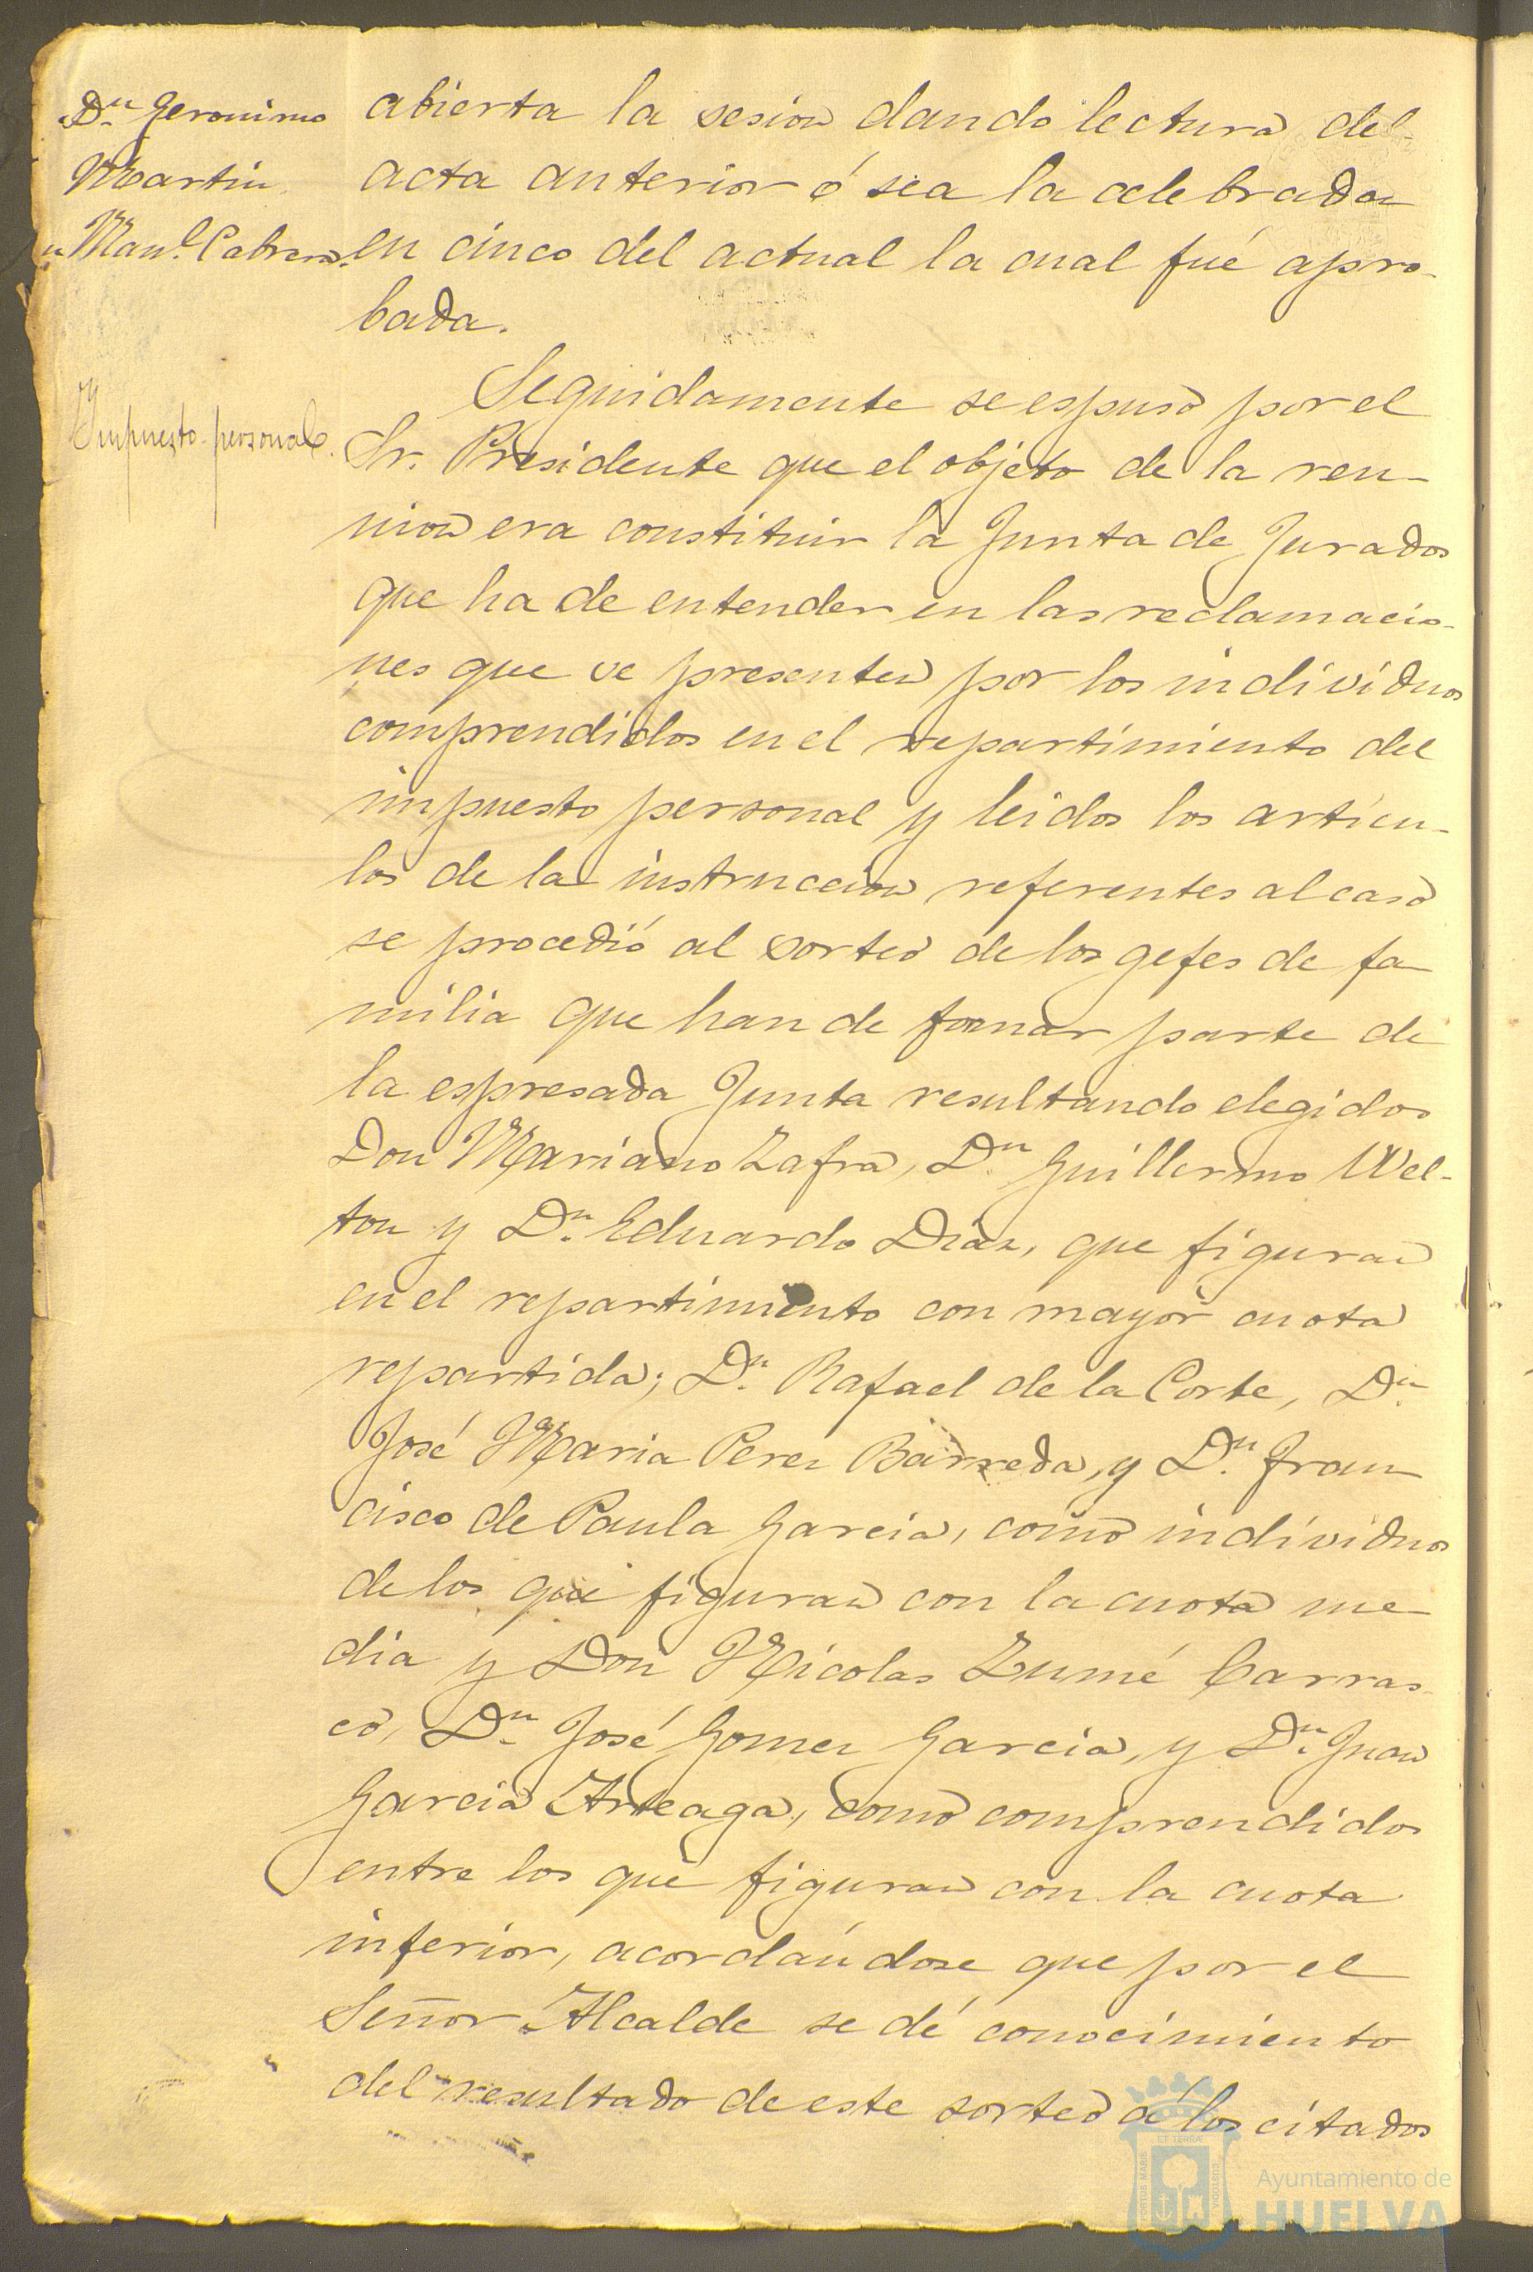 Dn. Geronimo
Martin
" Manl. Cabrera.
Impuesto personal.
abierta la sesion dando lectura del
acta anterior ó sea la celebrada
en cinco del actual la cual fué apro-
bada.
Seguidamente se espuso por el
Sr. Presidente que el objeto de la reu-
nion era constituir la Junta de Jurados
que ha de entender en las reclamacio-
nes que se presenten por los individuos
comprendidos en el repartimiento del
impuesto personal y leidos los articu-
los de la instruccion referentes al caso
se procedió al sorteo de los gefes de fa-
milia que han de formar parte de
la espresada Junta resultando elegidos
Don Mariano Zafra, Dn. Guillermo Wel-
ton y Dn. Eduardo Diaz, que figuran
en el repartimiento con mayor cuota
repartida; Dn. Rafael de la Corte, Dn.
José Maria Perez Barreda, y Dn. Fran-
cisco de Paula Garcia, como individuos
de los que figuran con la cuota me-
dia y Don Nicolas Zumé Carras-
co, Dn. José Gomez Garcia, y Dn. Juan
Garcia Arteaga, como comprendidos
entre los que figuran con la cuota
inferior, acordándose que por el
Señor Alcalde se dé conocimiento
del resultado de este sorteo á los citados
Ayuntamiento de
HUELVA